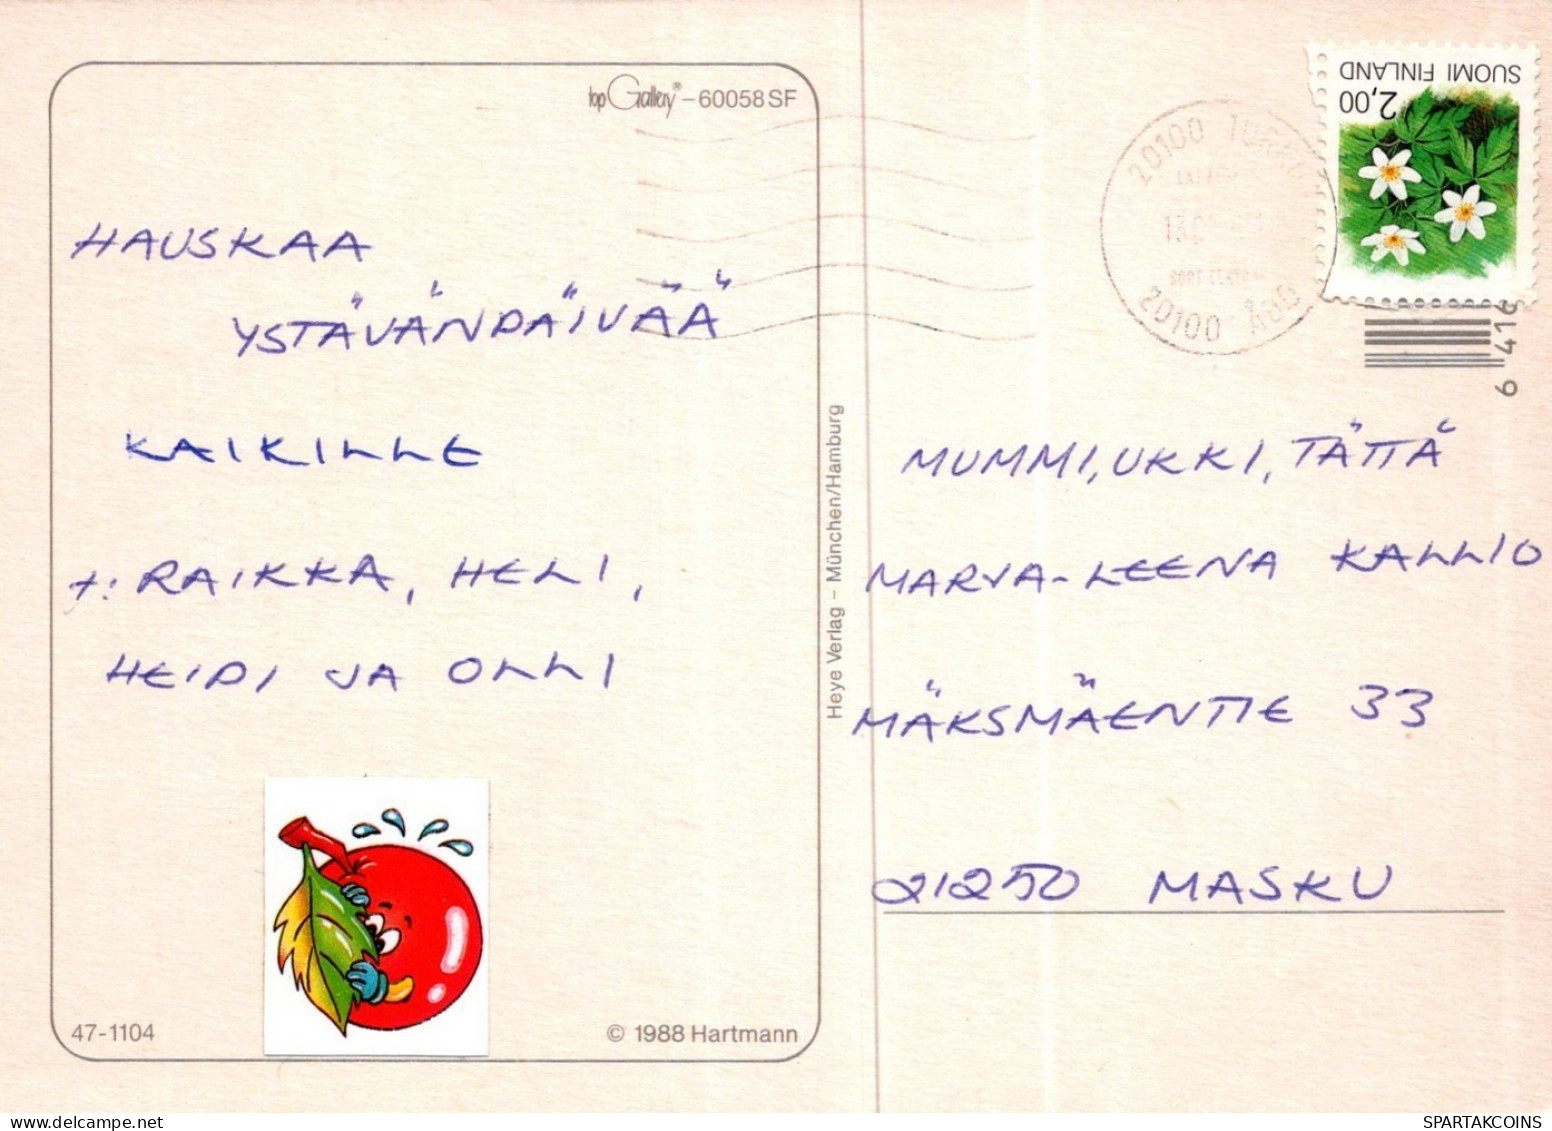 top Gallery® – 60058 SF
HAUSKAA
YSTÄVÄNPÄIVÄÄ
KAIKILLE
t: RAIKKA, HELI,
HEIDI JA OLLI
47-1104
© 1988 Hartmann
Heye Verlag – München/Hamburg
SUOMI FINLAND
2,00
20100 TURKU
20100 ÅBO
6 416
MUMMI, UKKI, TÄTTÄ
MARJA-LEENA KALLIO
MÄKSMÄENTIE 33
21250 MASKU
SPARTAKCOINS